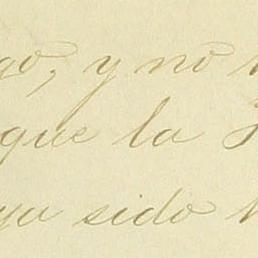 go, y no
que la
ya sido